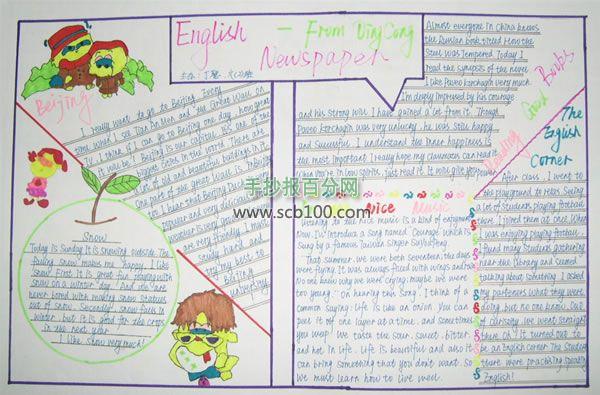 English - From Ding Cong
Newspaper
Beijing
I really want to go to Beijing. Every
time when I see Tian'An Men and the Great Wall on
TV. I think if I can go to Beijing one day, how great
it will be! Beijing is our capital. It's one of the
biggest cities in the world. There are
a lot of old and beautiful buildings in it.
One part of the great wall is in Beijing
popular and very delicious
are very friendly. I must
study hard and
try my best to
Beijing
university
Snow
Today is Sunday. It is snowing outside. The
falling snow makes me happy. I like
snow. First, it is great fun playing with
snow on a winter day. And we are
never bored with making snow statues
out of snow. Secondly, snow falls in
winter, but it is good for the crops
in the next year.
I like snow very much!
Almost everyone in China knows
the Russian book titled How the
Steel Was Tempered. Today I
read the synopsis of the novel
I like Paveo korchagin very much
I'm deeply impressed by his courage
and his strong will. I have gained a lot from it. Though
Paveo korchagin was very unlucky, he was still happy
and successful. I understand the inner happiness is
the most important. I really hope my classmates can read it
when you're in low spirits, just read it. It will give you power
Reading Good Books
Nice Music
Listening to the nice music is a kind of enjoyment
Now, I'll introduce a song named Courage which is
sung by a famous Taiwan singer
That summer, we were both seventeen, the days
were flying. It was always filled with wings and
No one knew why we were crying; maybe we were
too young." On hearing this song, I think of a
common saying: Life is like an onion. You can
peel it off one layer at a time, and sometimes
you weep. We taste the sour, sweet, bitter
and hot in life. Life is beautiful and also it
can bring something that you don't want. So
we must learn how to live well.
The
English
Corner
After class, I went to
the playground to relax. Seeing
a lot of students playing football
there, I joined them at once. When
I was enjoying playing football,
I found many students gathering
near the library and seemed
talking about something. I asked
my partners what they were
doing, but no one knew. Out
of curiosity, we went straight
there. Oh, it turned out to
be an English corner. The students
there were practising speaking
English!
手抄报百分网
www.scb100.com